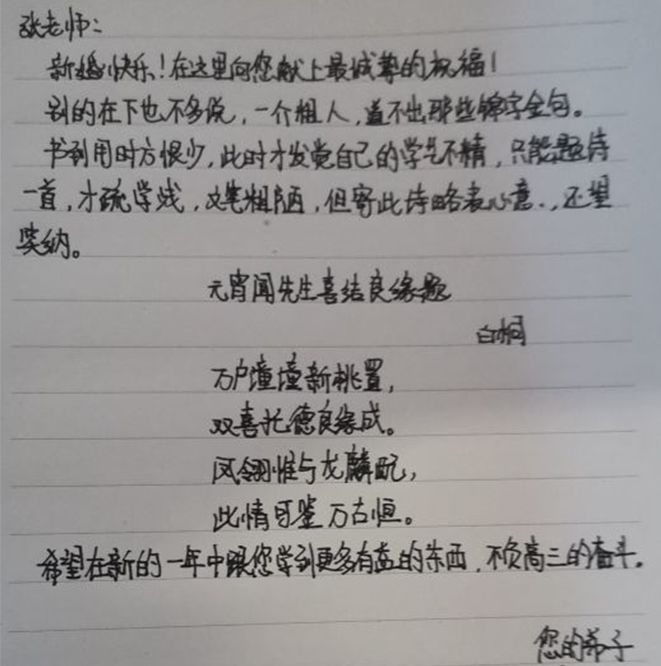 张老师：
新婚快乐！在这里向您献上最诚挚的祝福！
别的在下也不多说，一个粗人，道不出那些锦字金句。
书到用时方恨少，此时才发觉自己的学艺不精，只能题诗
一首，才疏学浅，文笔粗陋，但寄此诗略表心意，还望
笑纳。
元宵闻先生喜结良缘题
白桐
万户憧憧新桃置，
双喜托德良缘成。
凤翎惟与龙麟配，
此情可鉴万古恒。
希望在新的一年中跟您学到更多有益的东西，不负高三的奋斗。
您的弟子